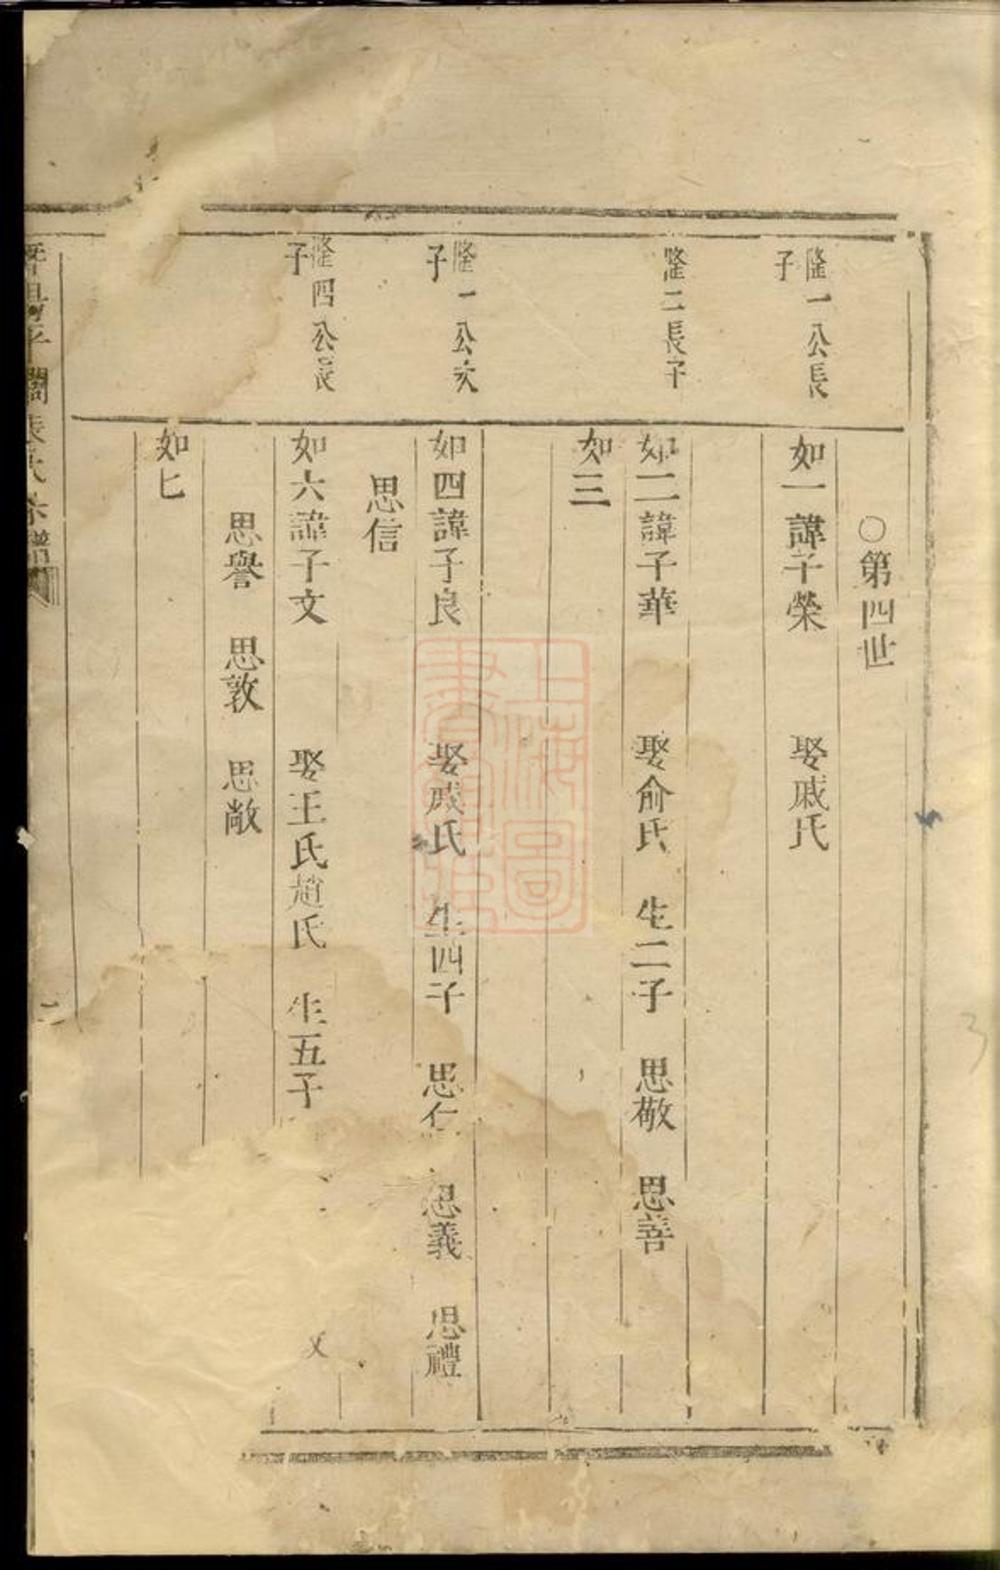 ○第四世
隆一公長
子
如一諱子榮 娶戚氏
隆二長子
如二諱子華 娶俞氏 生二子 思敬 思善
如三
隆一公次
子
如四諱子良 娶戚氏 生四子 思仁 思義 思禮
思信
隆四公長
子
如六諱子文 娶王氏趙氏 生五子
思譽 思敦 思敞
如七
上海圖
書館藏